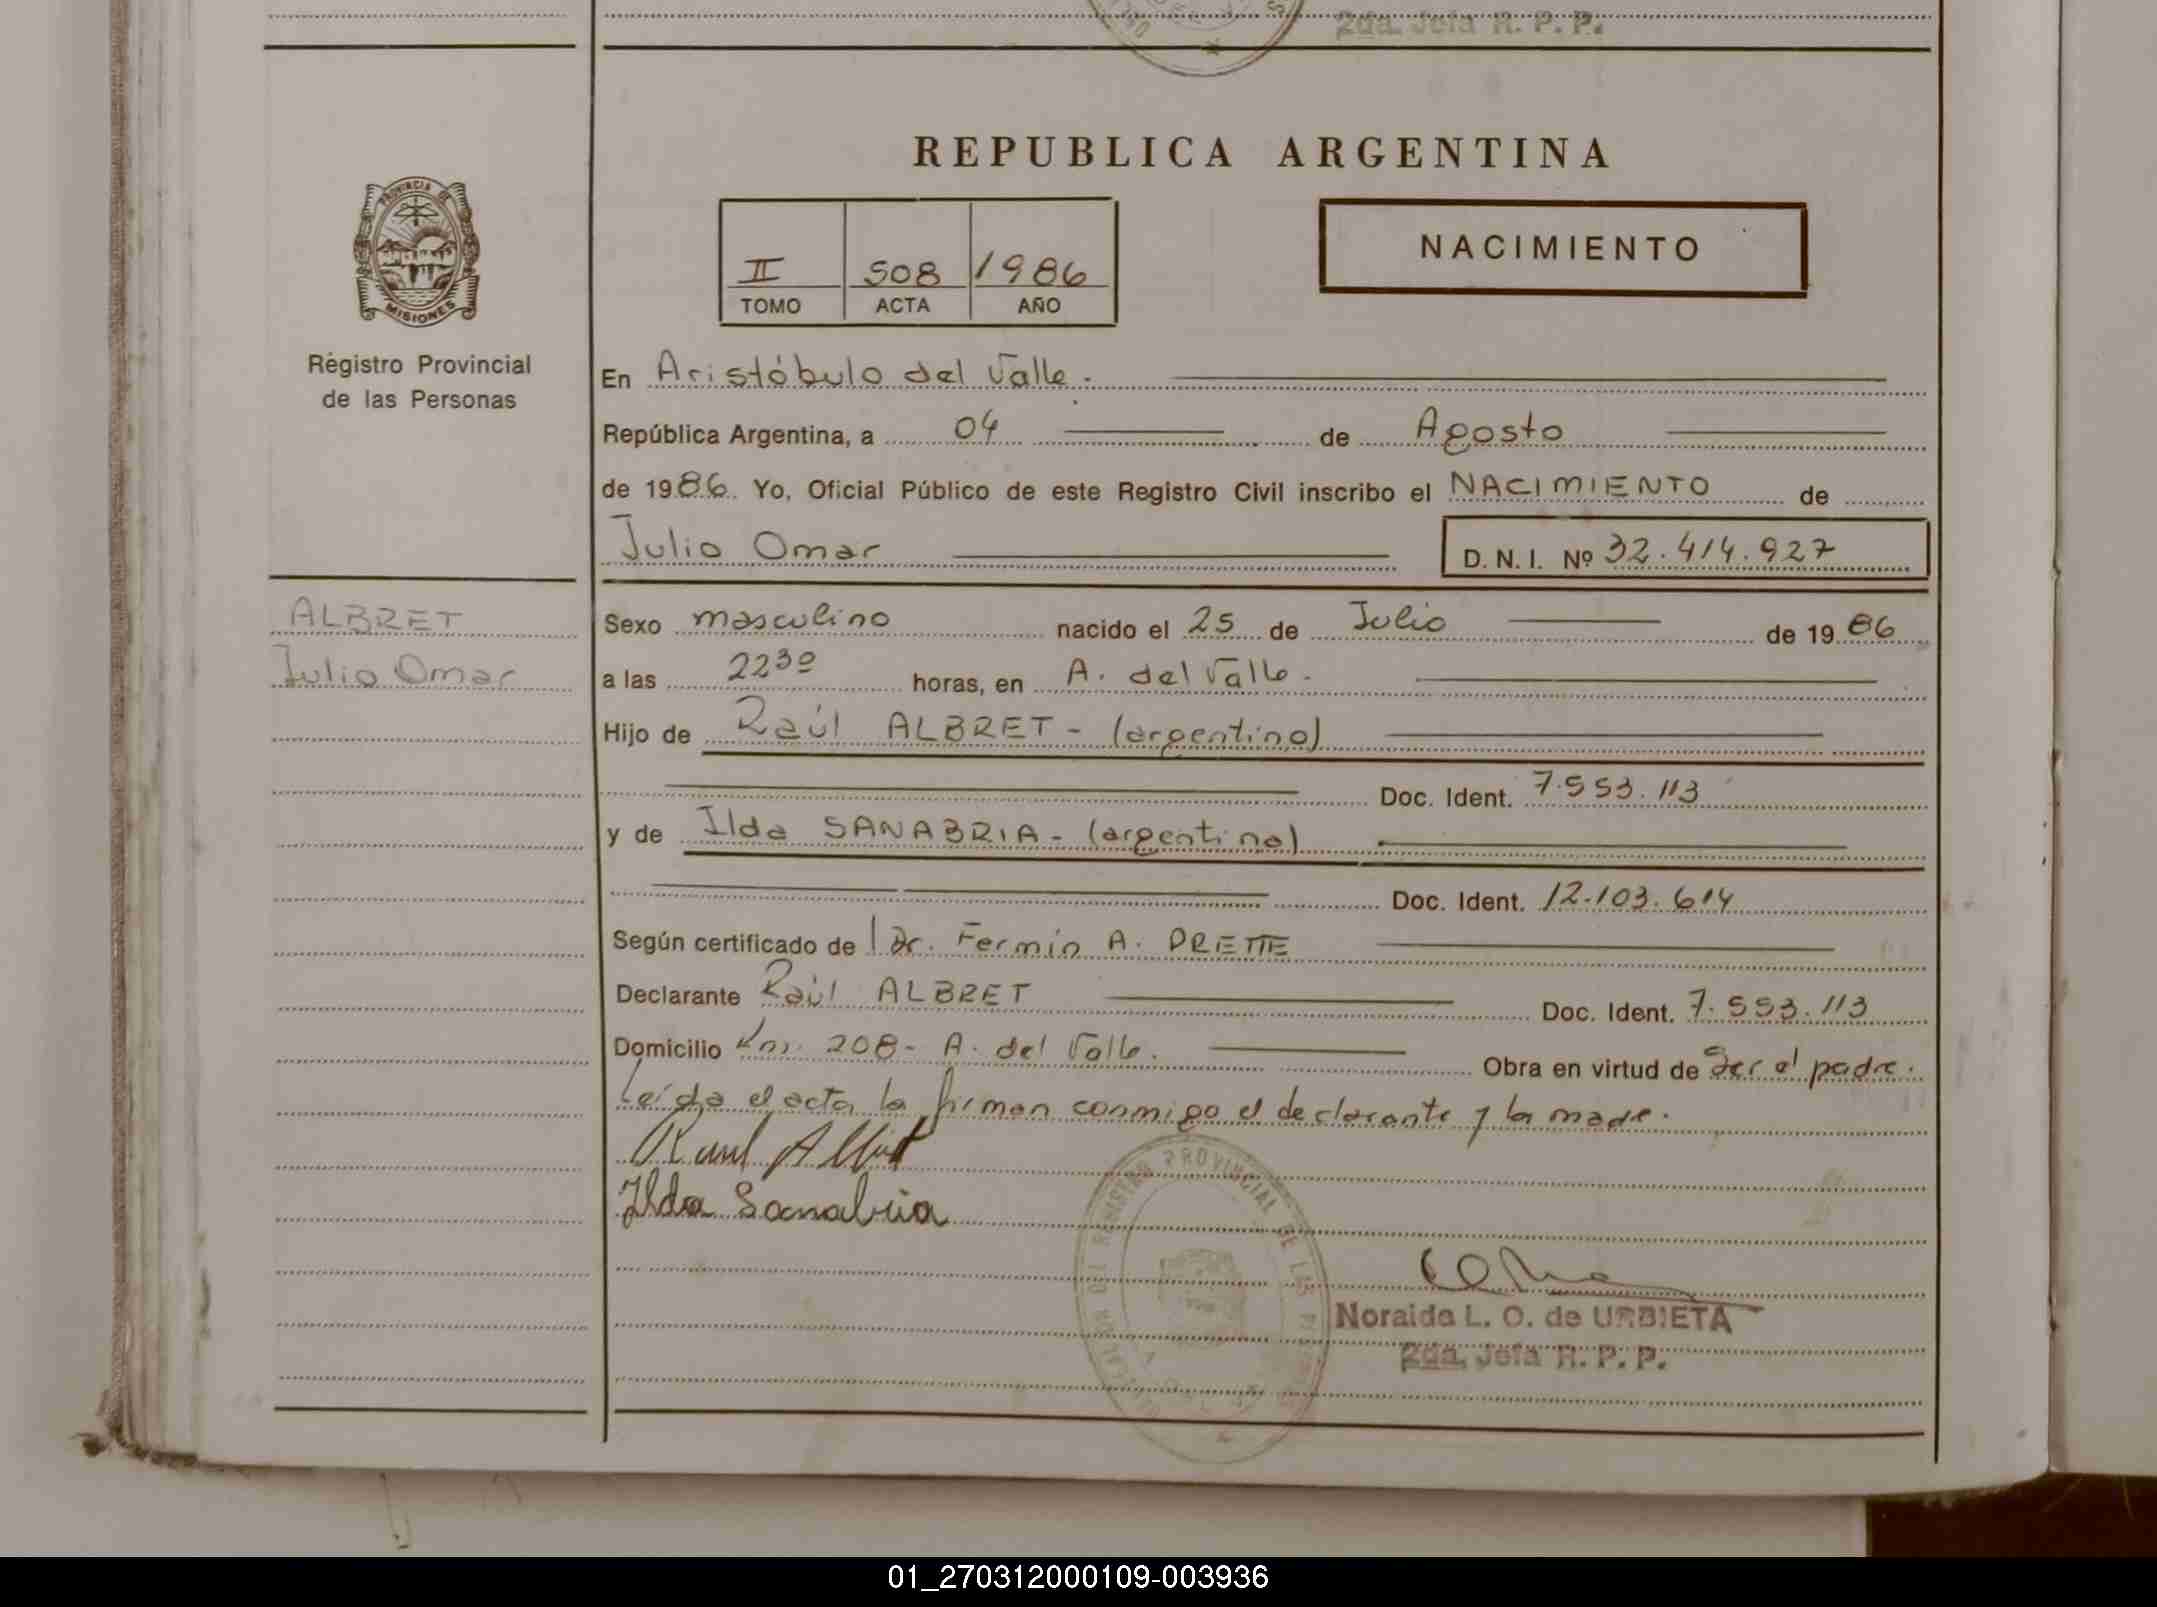 2da. Jefa R. P. P.
REPUBLICA ARGENTINA
NACIMIENTO
II 508 1986
TOMO ACTA AÑO
PROVINCIA DE
MISIONES
Registro Provincial
de las Personas
En Aristóbulo del Valle.
República Argentina, a 04 de Agosto
de 1986. Yo, Oficial Público de este Registro Civil inscribo el NACIMIENTO de
Julio Omar D. N. I. Nº 32.414.927
ALBRET
Julio Omar
Sexo masculino nacido el 25 de Julio de 1986
a las 22³⁰ horas, en A. del Valle.
Hijo de Raúl ALBRET - (argentino)
Doc. Ident. 7.553.113
y de Ilda SANABRIA - (argentina)
Doc. Ident. 12.103.614
Según certificado de Dr. Fermín A. PRETTE
Declarante Raúl ALBRET Doc. Ident. 7.553.113
Domicilio Km. 208 - A. del Valle. Obra en virtud de ser el padre.
Leída el acta la firman conmigo el declarante y la madre.
Raul Albret
Ilda Sanabria
REGISTRO PROVINCIAL DE LAS
Noraida L. O. de URBIETA
2da. Jefa R. P. P.
01_270312000109-003936